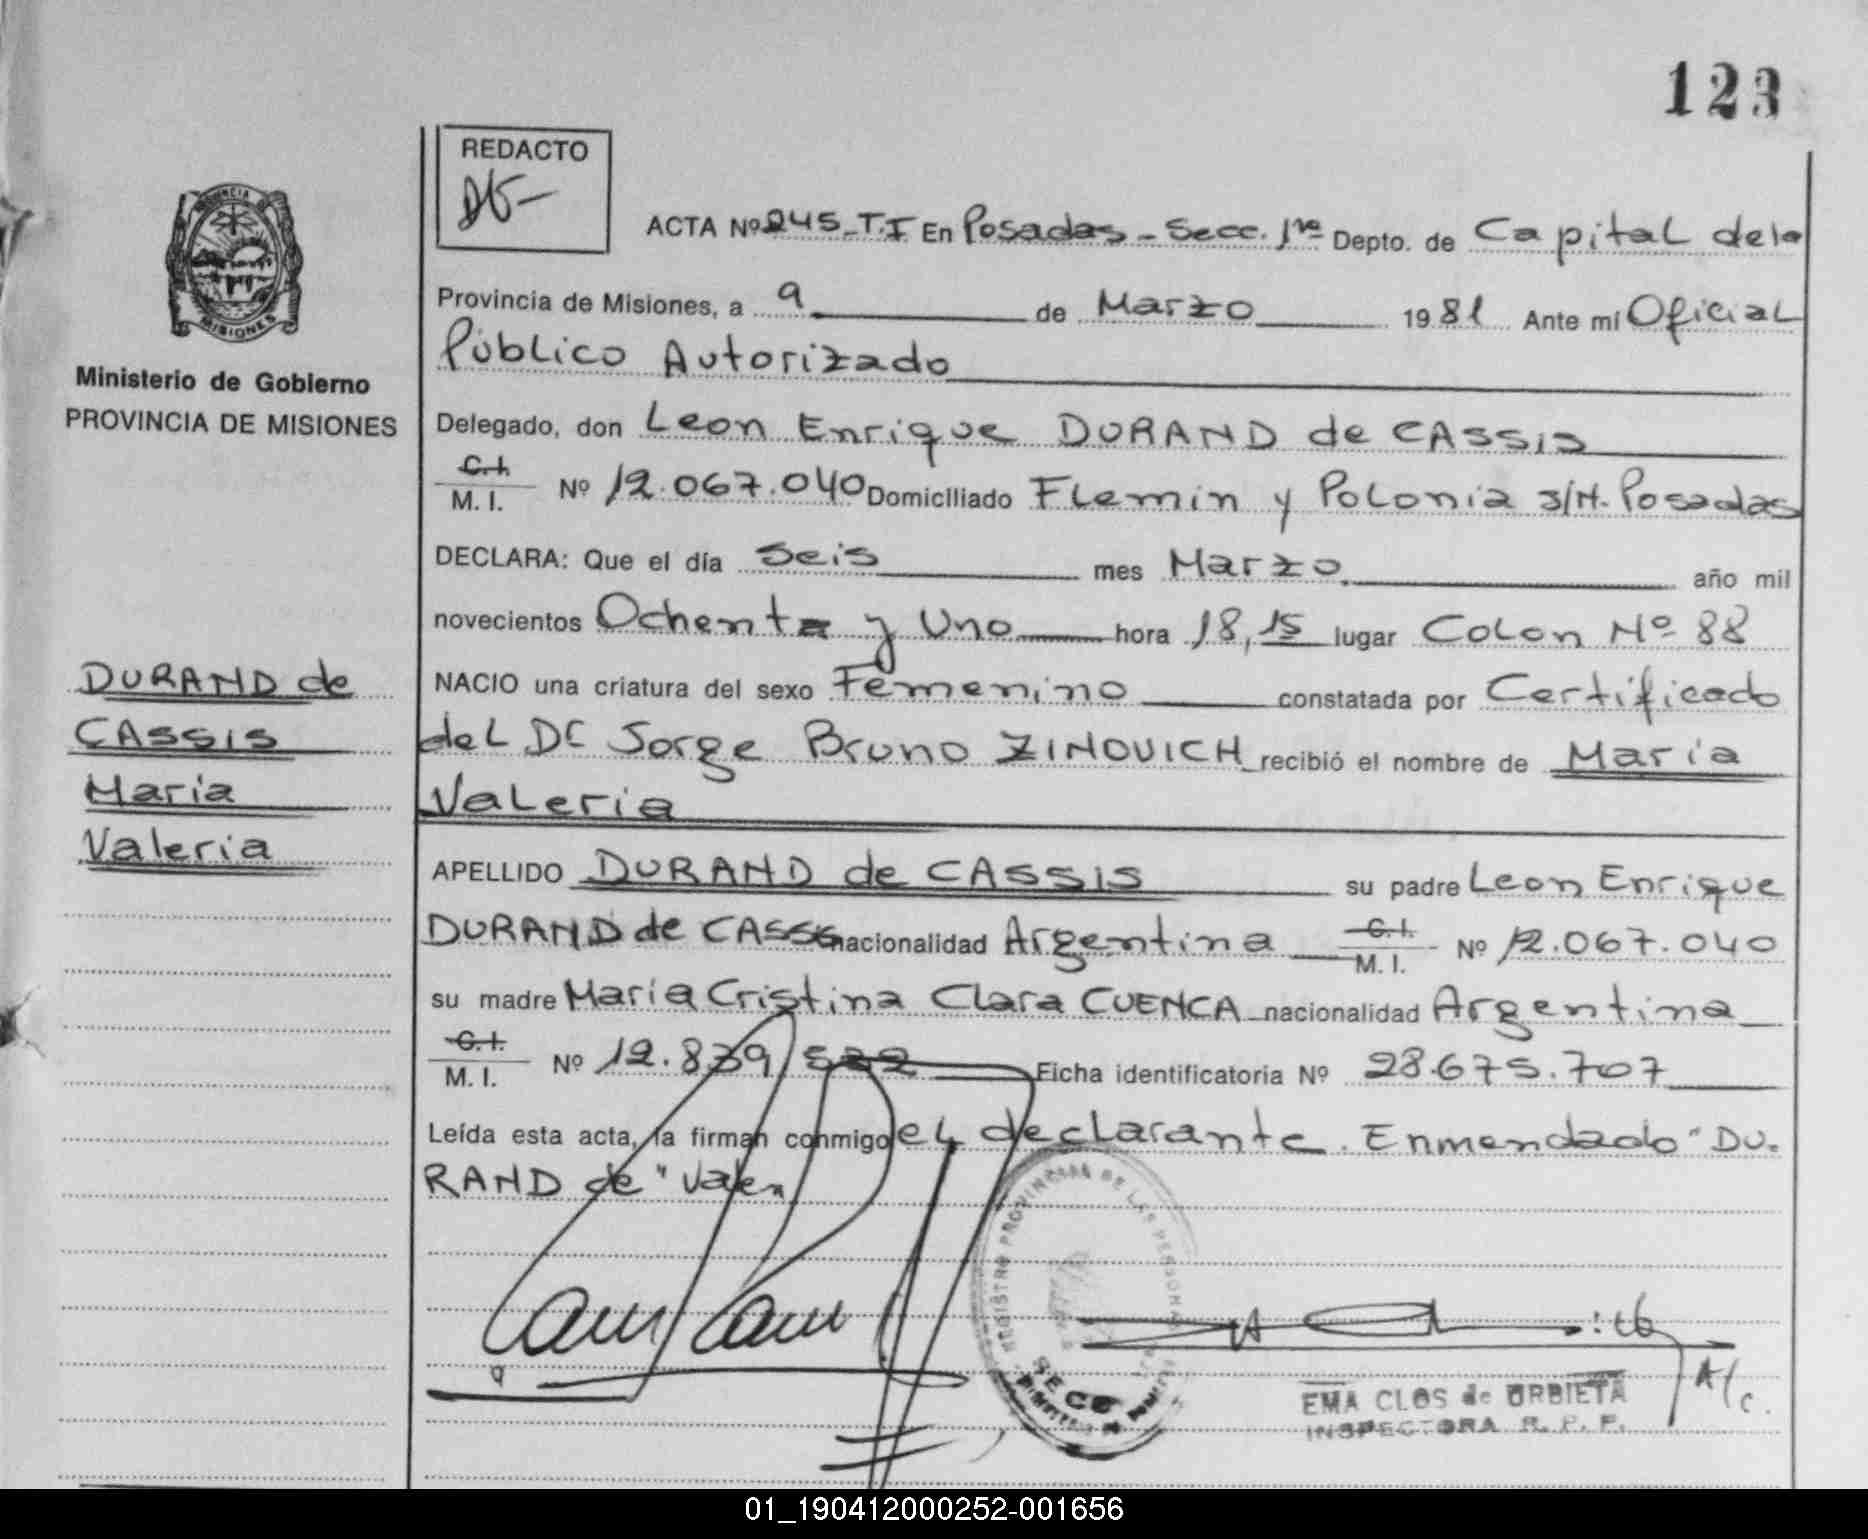 123
REDACTO
ACTA Nº 245-T.I En Posadas - Secc. 1ra Depto. de Capital de la
Provincia de Misiones, a 9 de Marzo 1981 Ante mí Oficial
Público Autorizado
Ministerio de Gobierno
PROVINCIA DE MISIONES
Delegado, don Leon Enrique DURAND de CASSIS
C.I.
M. I. Nº 12.067.040 Domiciliado Flemin y Polonia S/N. Posadas
DECLARA: Que el día Seis mes Marzo. año mil
novecientos Ochenta y Uno hora 18,15 lugar Colon Nº 88
DURAND de
CASSIS
María
Valeria
NACIO una criatura del sexo Femenino constatada por Certificado
del Dr Jorge Bruno ZINOVICH recibió el nombre de María
Valeria
APELLIDO DURAND de CASSIS su padre Leon Enrique
DURAND de CASSIS nacionalidad Argentina C.I.
M. I. Nº 12.067.040
su madre María Cristina Clara CUENCA nacionalidad Argentina
C.I.
M. I. Nº 12.839.522 Ficha identificatoria Nº 28.675.707
Leída esta acta, la firman conmigo el declarante. Enmendado "DU-
RAND de" Valen
REGISTRO PROVINCIAL DE LAS PERSONAS
SECC
A/c.
EMA CLOS de ORBIETA
INSPECTORA R. P. P.
01_190412000252-001656